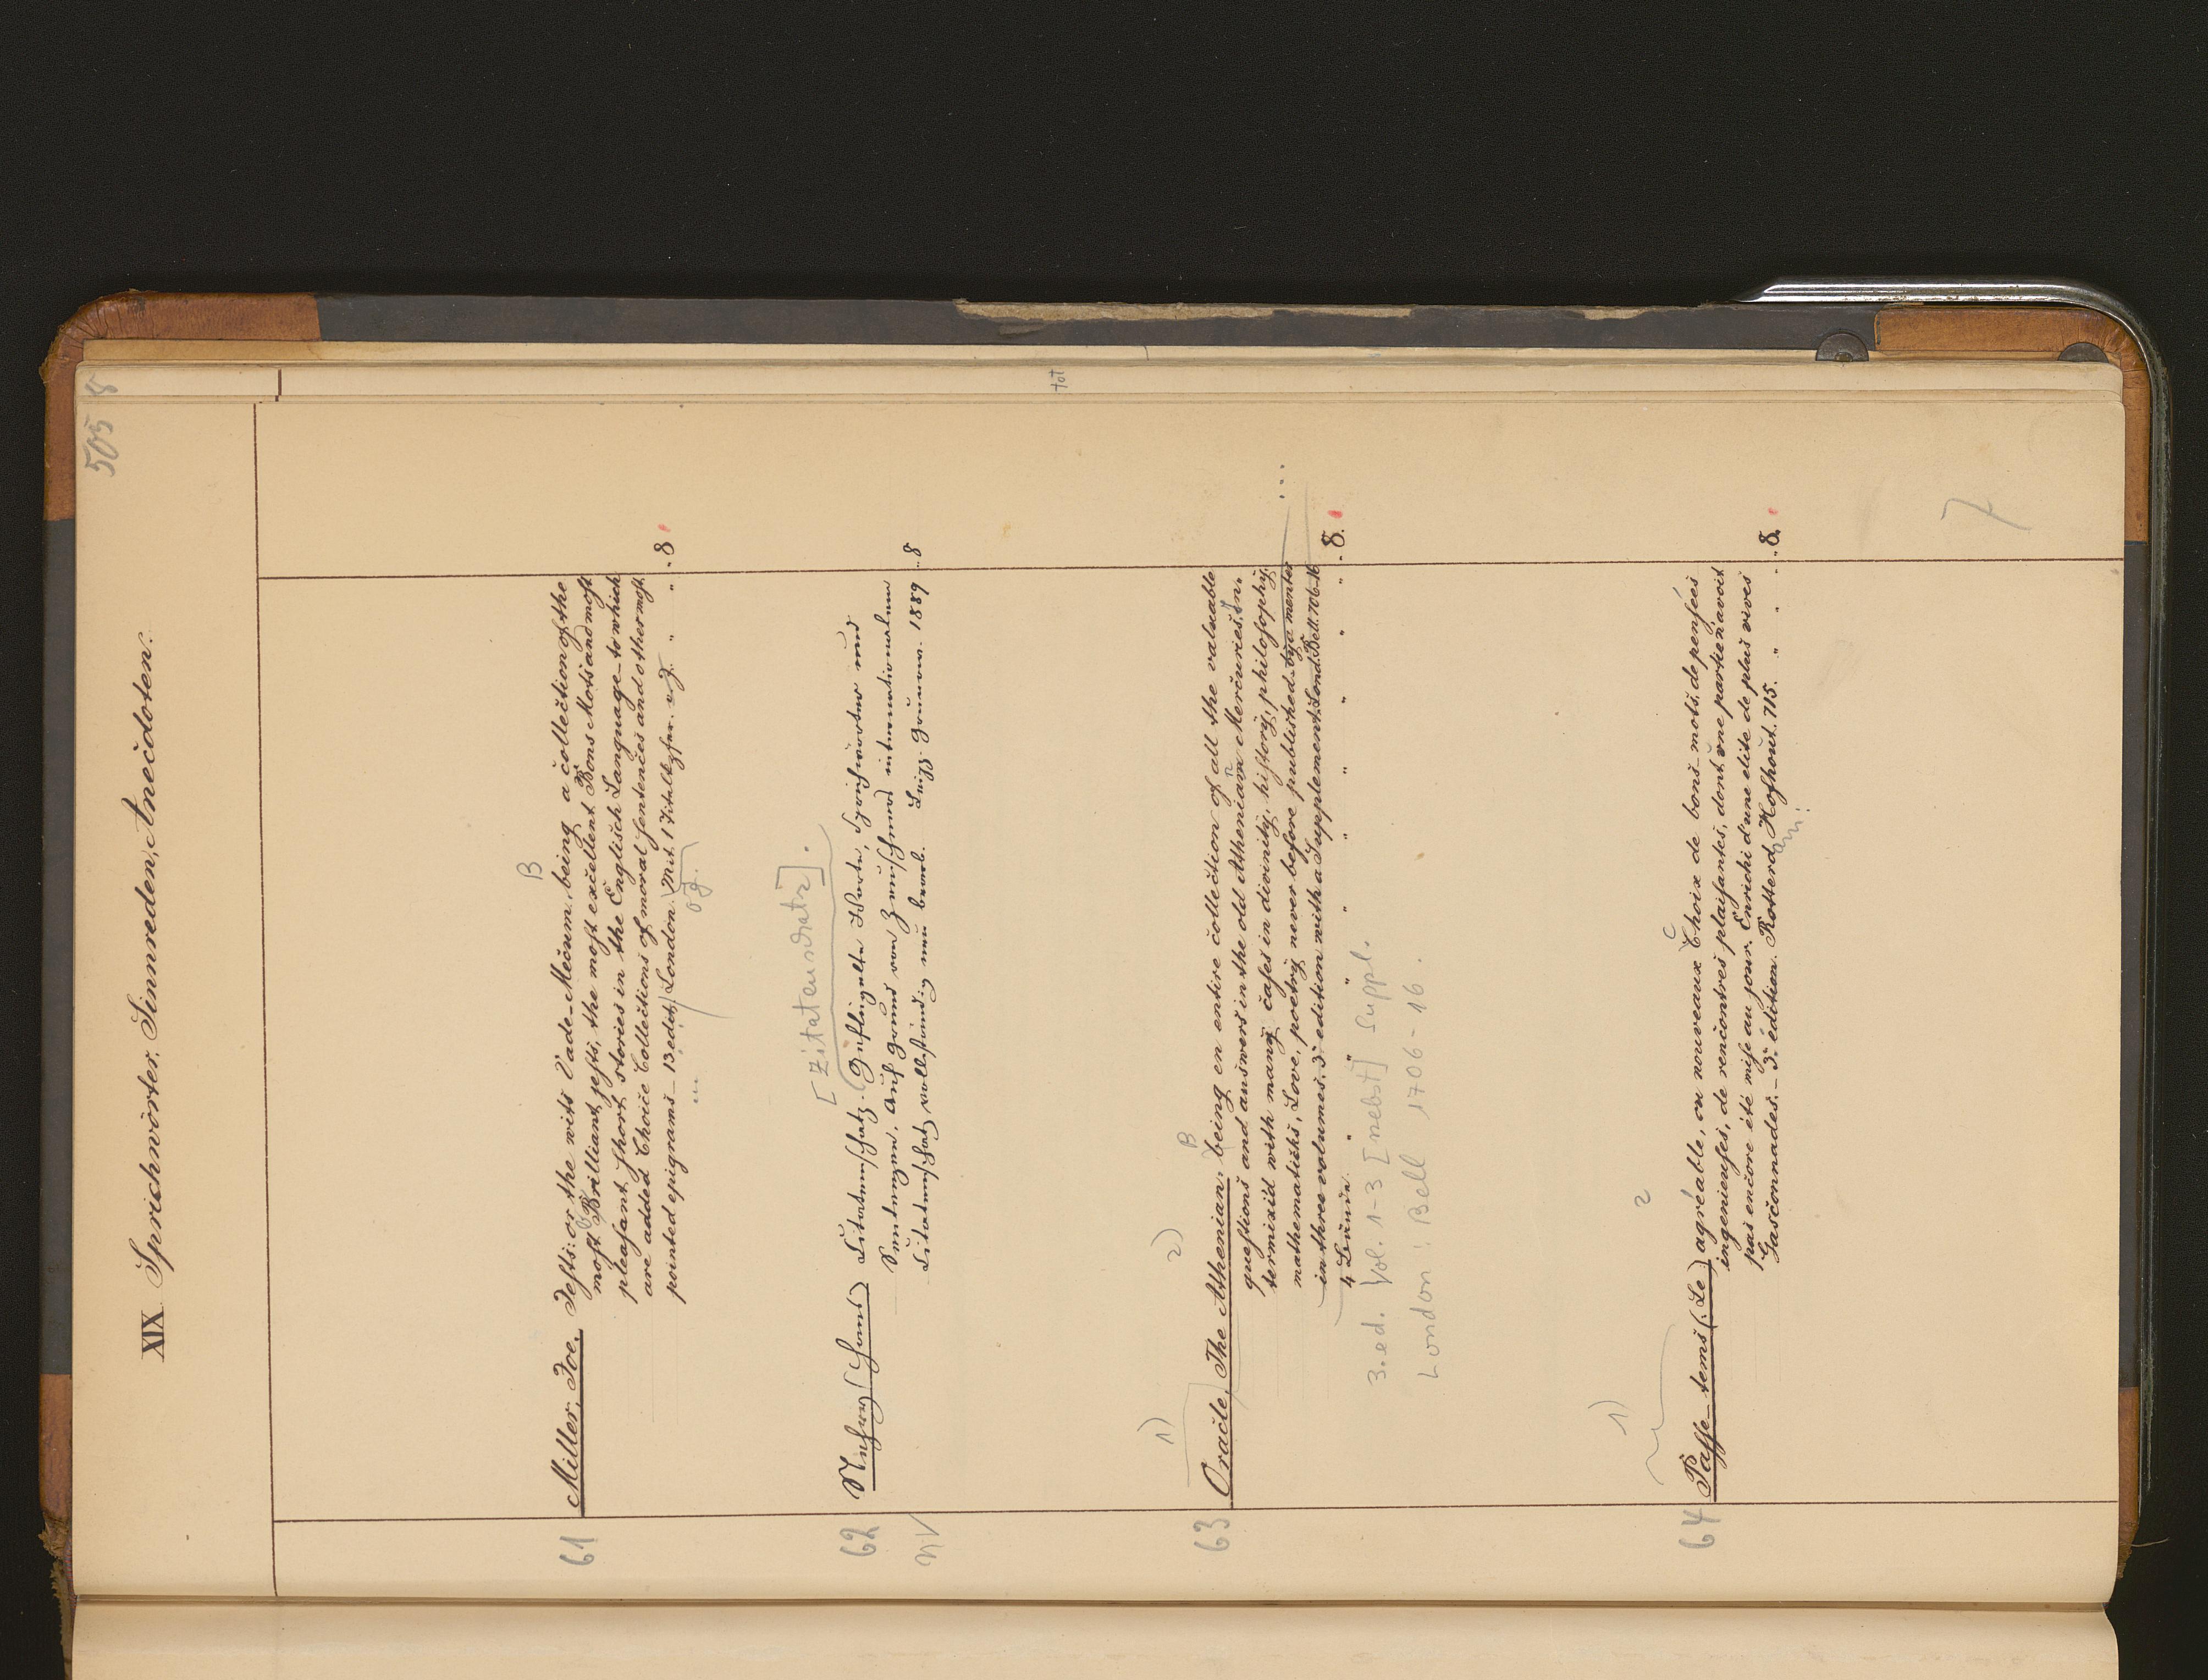 505 8
XIX Sprichwörter, Sinnreden, Anecdoten.
61 Miller, Joe, Jests: or the wits Vade-Mecum, being a collection of the
most Brilliant jests, the most excellent Bons Mots and most
pleasant short stories in the Englisch Language - to which
are added Choice Collections of moral sentences and other most
pointed epigrams - 13 edit. London. Mit 1 Titelkpfer. " " . 8
[Zitatenschatz].
62 (Hans) Zitatenschatz. Geflügelte Worte, Sprichwörter und
Sentenzen. Auf Grund von internationalem
Zitatenschatz vollständig neu bearb. Leipz. Grunow. 1889 . 8
nV
1) 2) B
63 Oracle, The Athenian, being en entire collection of all the valuable
questions and answers in the old Athenian Mercuries. In-
termixid with many cases in divinity, history, philosophy,
mathematicks, Love, poetry never before published by a member ...
in three volumes. 3e edition with a Supplement. Lond. Bell. 706-16
4 Bände. " " " " " " " " . 8.
3. ed. Vol. 1-3 [nebst] Suppl.
London: Bell 1706-16.
1) 2 C
64 Passe-tems (Le) agréable, ou nouveaux Choix de bons-mots, de pensées
ingenieuses, de rencontres plaisantes, dont une partie n'avoit
pas encore été mise au jour. Enrichi d'une elite de plus vives
Gasconnades. - 3e édition. Rotterd. Hofhout. 715. " " . 8.
am:
7
tot